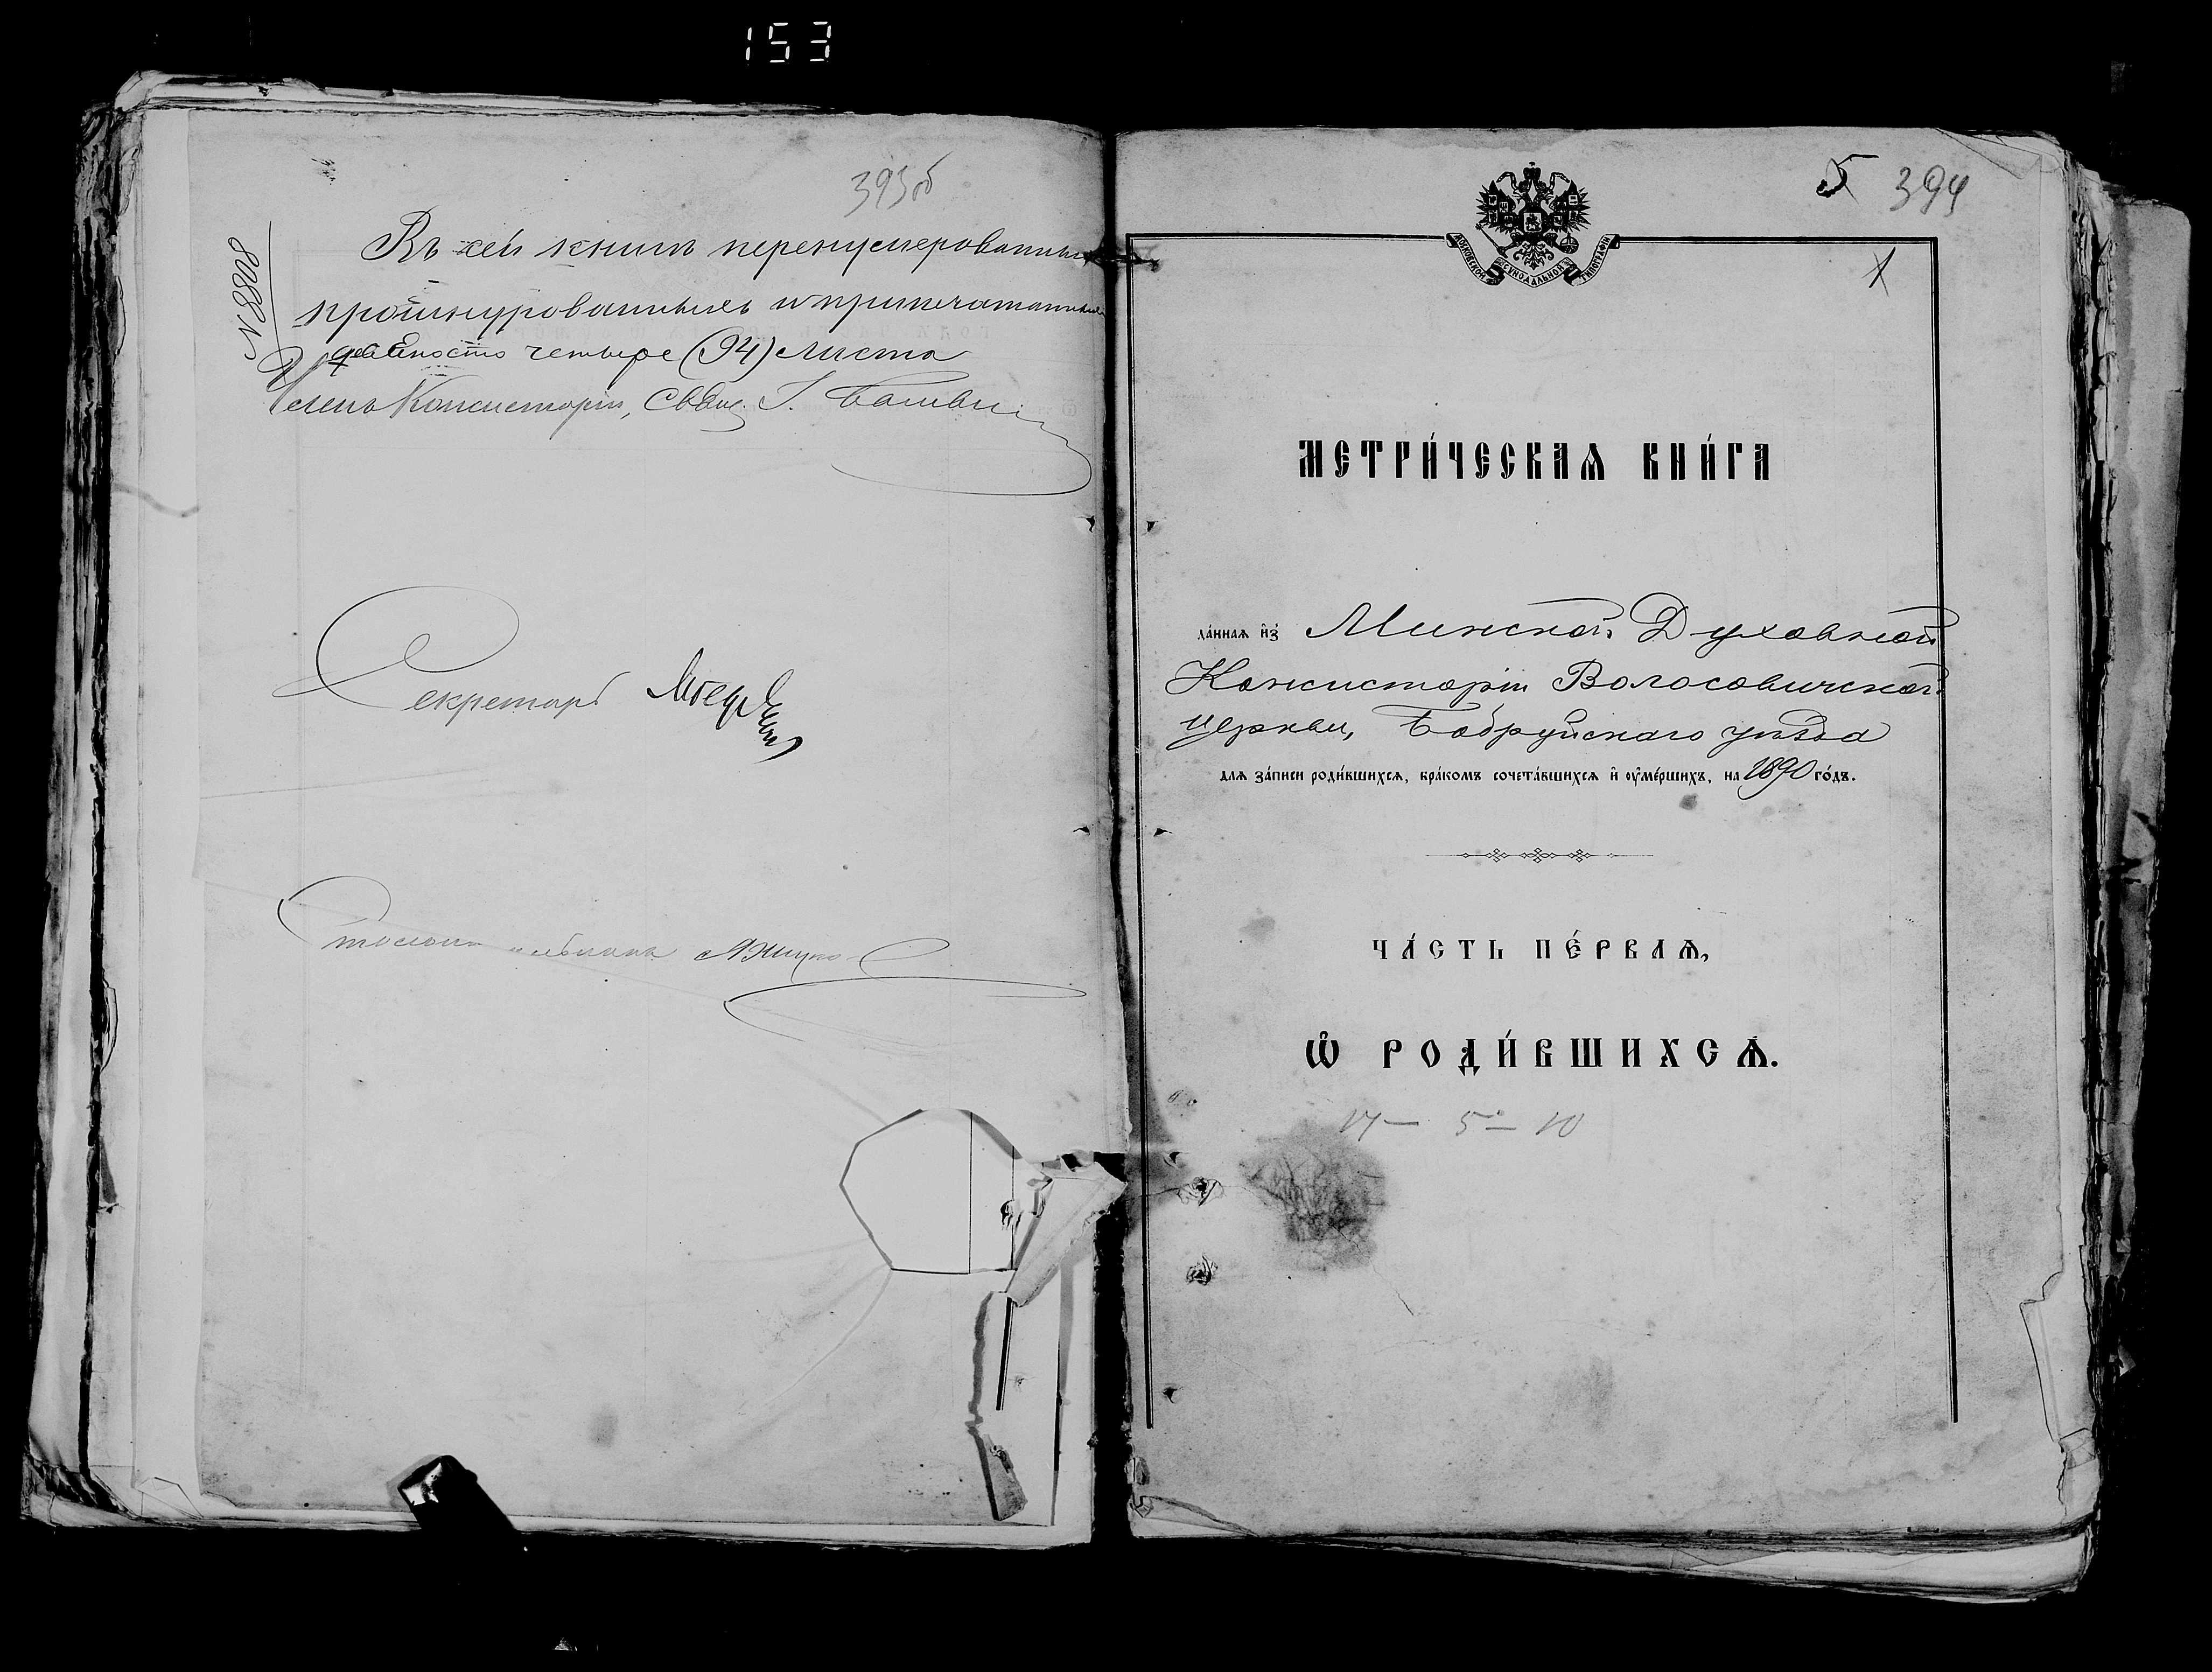 153
393об
№ 8808
Въ сей книгѣ перенумерованныхъ
прошнурованныхъ и припечатанныхъ
девяносто четыре (94) листа
Членъ Консисторіи, Свящ. І.
Секретарь
Столоначальникъ
5 394
МОСКОВСКОЙ СѴНОДАЛЬНОЙ ТИПОГРАФІИ
1
МЕТРИ́ЧЕСКАѦ КНИ́ГА
да́ннаѧ и҆з̾ Минской Духовной
Консисторіи Волосовичской
церкви, Бобруйскаго уѣзда
длѧ за́писи роди́вшихсѧ, бра́комъ сочета́вшихсѧ и҆ ᲂу҆ме́ршихъ, на 1890 го́дъ.
ЧА́СТЬ ПЕ́РВАѦ,
Ѡ҆ РОДИ́ВШИХСѦ.
17 — 5 — 10